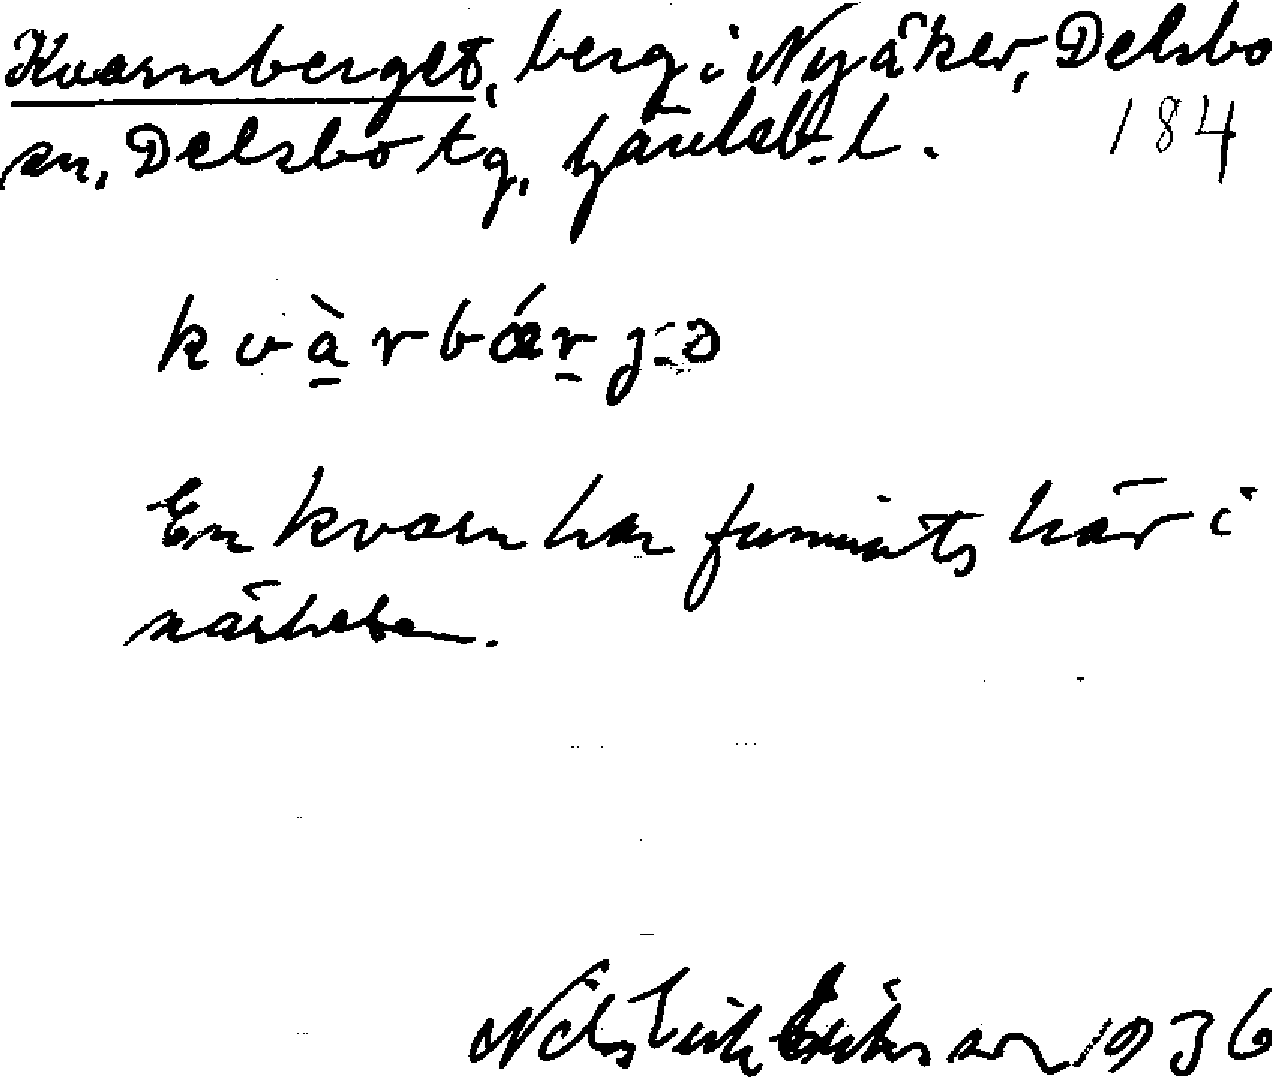 Kvarnberget, berg i Nyåker, Delsbo
sn, Delsbo tg, Gävleb. l. 184
kvàrbǽrjə
En kvarn har funnits här i
närheten.
Nils Erik Eriksson 1936